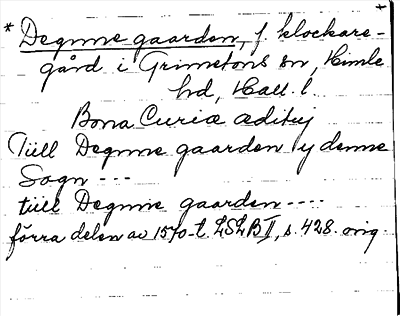 * Degnne gaarden, f. klockare-
gård i Grimetons sn, Himle
hd, Hall. l.
Bona Curiæ æditij
Tiill Degnne gaarden y denne
Sogn ---
tiill Degnne gaarden ----
förra delen av 1570-t. LSLB II, s. 428. orig.